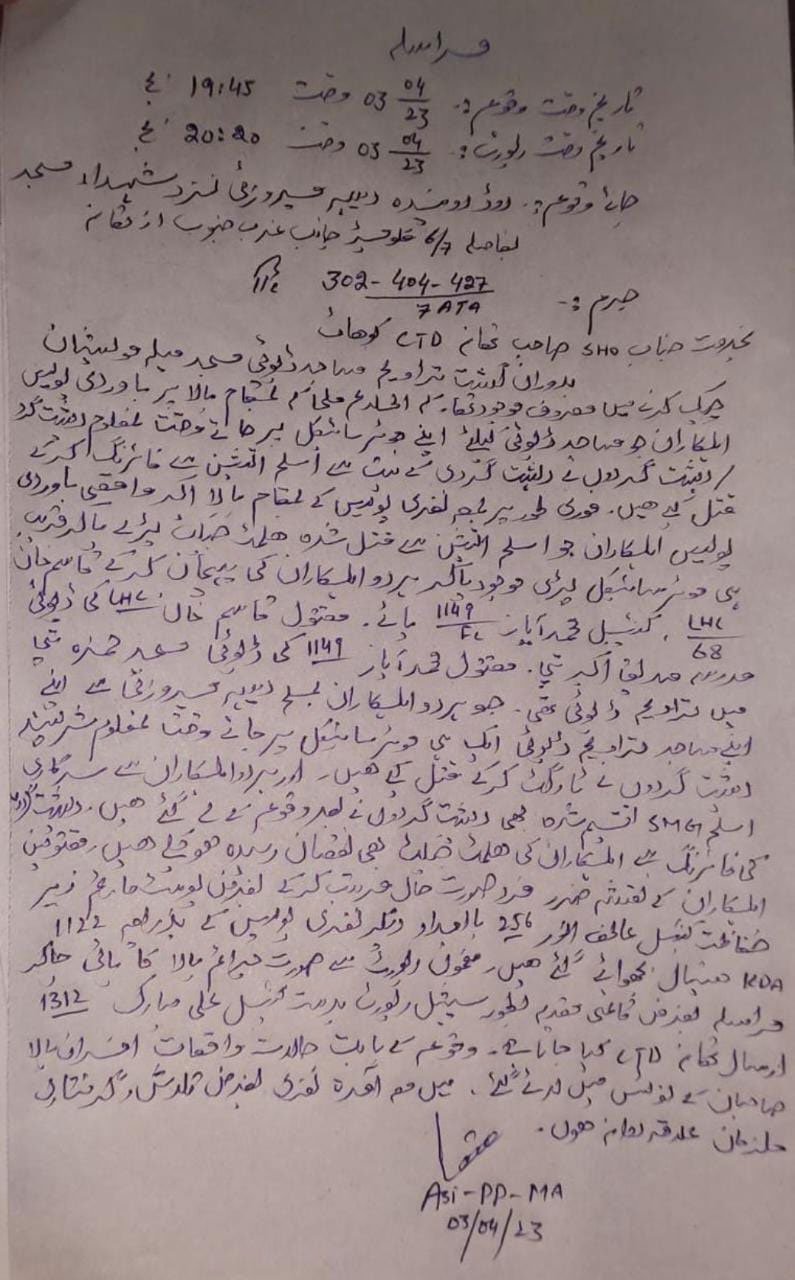 مراسلہ
تاریخ وقت وقوعہ:۔ 03 04/23 وقت 19:45 بجے
تاریخ وقت رپورٹ:۔ 03 04/23 وقت 20:20 بجے
جائے وقوعہ:۔ روڈ دیہہ فیروزئی نزد شہداء مسجد
بفاصلہ 6/7 کلومیٹر جانب غرب جنوب از تھانہ
جرم:۔ 302-404-427 / 7ATA
بخدمت جناب SHO صاحب تھانہ CTD کوہاٹ
بدوران گشت تراویح مساجد ڈیوٹی مسجد
چیک کرنے میں مصروف موجود تھا کہ اطلاع ملی کہ بمقام بالا پر باوردی پولیس
اہلکاران جو مساجد ڈیوٹی کیلئے اپنے موٹر سائیکل پر جاتے وقت نامعلوم دہشت گرد
/ دہشت گردوں نے دہشت گردی کے نیت سے اسلحہ آتشین سے فائرنگ کرکے
قتل کیے ہیں۔ فوری طور پر بمعہ نفری پولیس کے بمقام بالا آکر واقعی باوردی
پولیس اہلکاران جو اسلحہ آتشین سے قتل شدہ پڑے پاکر قریب
ہی موٹر سائیکل پڑی موجود پاکر ہر دو اہلکاران کی پہچان کرکے قاسم خان
LHC/68 ، کنسٹیبل محمد آیاز 1149/FC پائے۔ مقتول قاسم خان LHC کی ڈیوٹی
مدرسہ صدیق اکبر تھی۔ مقتول محمد آیاز 1149 کی ڈیوٹی مسجد حمزہ
میں تراویح ڈیوٹی تھی۔ جو ہر دو اہلکاران دیہہ فیروزئی سے اپنے
اپنے مساجد تراویح ڈیوٹی ایک ہی موٹر سائیکل پر جاتے وقت نامعلوم شرپسند
دہشت گردوں نے ٹارگٹ کرکے قتل کیے ہیں۔ اور ہر دو اہلکاران سے سرکاری
اسلحہ SMG تقسیم شدہ بھی دہشت گردوں نے بعد وقوعہ کے لے گئے ہیں۔ دہشت گردوں
کی فائرنگ سے اہلکاران کی بھی نقصان رسیدہ ہو چکے ہیں۔ مقتولین
اہلکاران کے نقشہ ضرر فرد صورت حال مرتب کرکے بغرض پوسٹ مارٹم زیر
حفاظت کنسٹیبل عاطف النور 256 باامداد دیگر نفری پولیس کے بذریعہ 1122
KDA ہسپتال بھجوائے گئے ہیں، مضمون رپورٹ سے صورت جرائم بالا کا پائی جاکر
مراسلہ بغرض قائمی مقدمہ بطور سپیشل رپورٹ بدست کنسٹیبل علی مبارک 1312
ارسال تھانہ CTD کیا جاتا ہے۔ وقوعہ کے بابت حالات واقعات افسران بالا
صاحبان کے نوٹس میں لائے گئے۔ میں مع آمدہ نفری بغرض تلاش و گرفتاری
ملزمان علاقہ روانہ ہوں۔
ASI-PP-MA
03/04/23